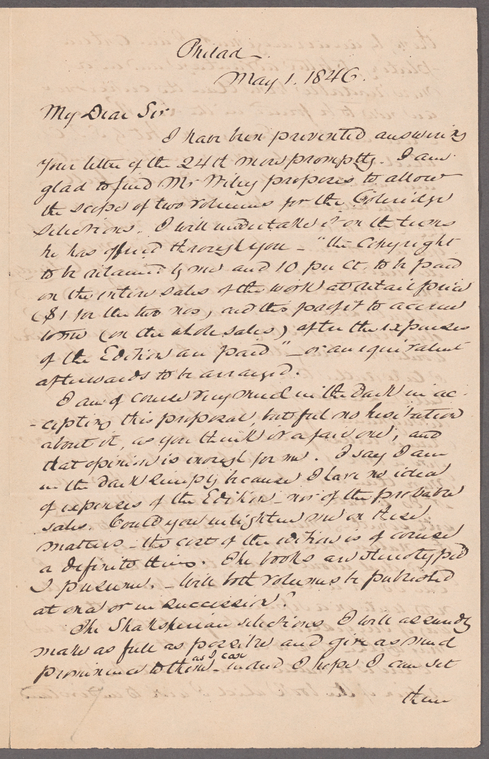 Philad -
May 1. 1846.
My Dear Sir
I have been prevented answering
your letter of the 24th more promptly. I am
glad to find Mr Wiley proposes to allow
the scope of two volumes for the Coleridge
selections. I will undertake it on the terms
he has offered through you - "the Copyright
to be retained by me and 10 per ct. to be paid
on the entire sales of the work at retail price
($1 for the two nos, and this profit to accrue
to me (on the whole sales) after the expenses
of the Edition are paid" - or an equivalent
afterwards to be arranged.
I am of course very much in the dark in ac-
-cepting this proposal but feel no hesitation
about it, as you think it a fair one, and
that opinion is enough for me. I say I am
in the dark simply because I have no idea
of expenses of the Edition nor of the probable
sales. Could you enlighten me on these
matters - the cost of the edition is of course
a definite thing. The books are stereotyped
I presume. - Will both volumes be published
at once or in succession?
The Shakspearian selections I will assuredly
make as full as possible and give as much
prominence to them as I can - indeed I hope I can set
them